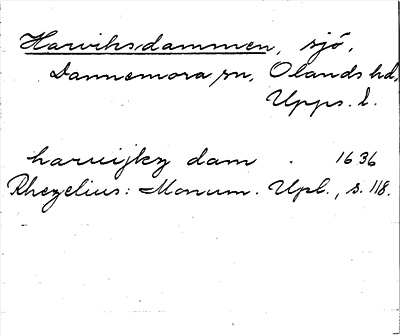 Harviksdammen, sjö,
Dannemora sn, Olands hd,
Upps. l.
harvijkz dam . 1636
Rhezelius: Monum. Upl., s. 118.